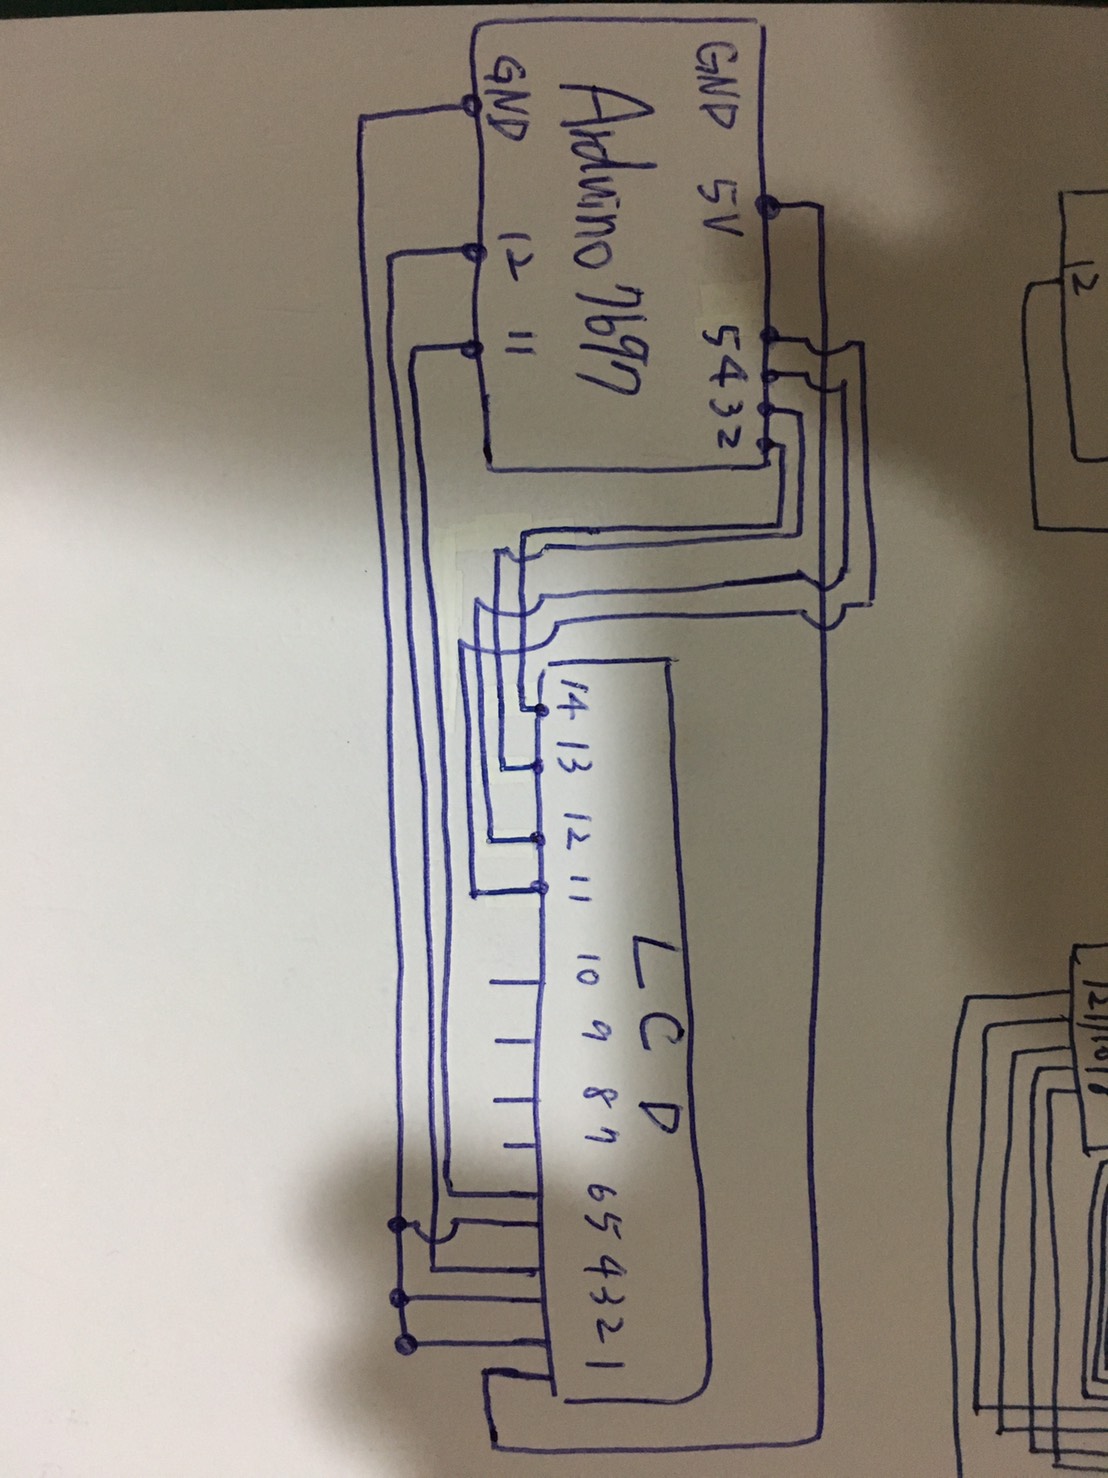 GND 5V 5 4 3 2
Arduino 7697
GND 12 11
LCD
14 13 12 11 10 9 8 7 6 5 4 3 2 1
12